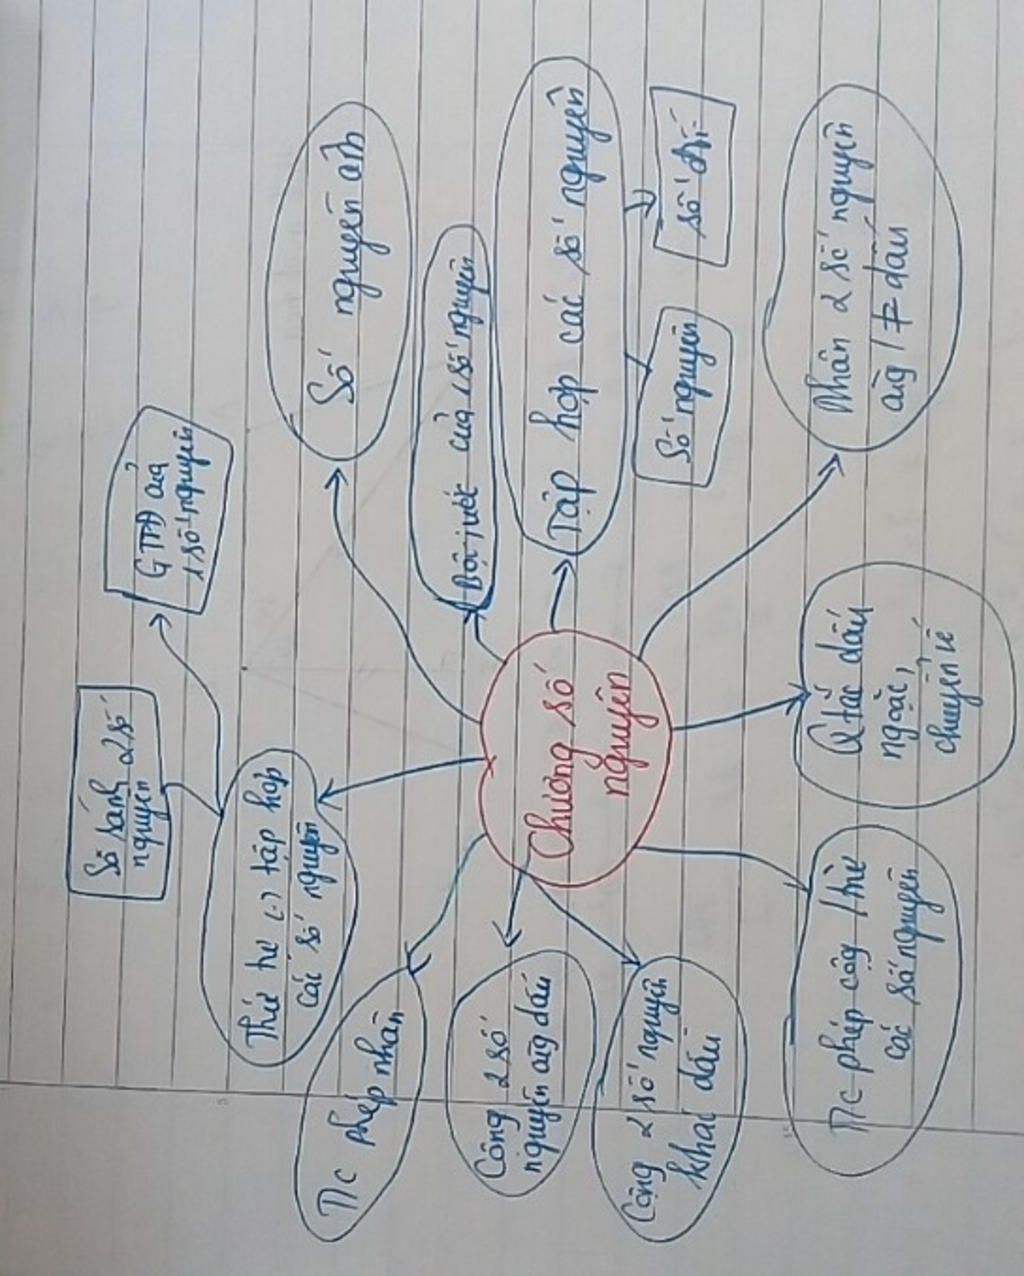 Chương số
nguyên
Số nguyên âm
Bội, ước của 1 số nguyên
Tập hợp các số nguyên
Số nguyên
số đối
Nhân 2 số nguyên
cùg / ≠ dấu
Qtắc dấu
ngoặc,
chuyển vế
T/c phép cộg / trừ
các số nguyên
Cộng 2 số nguyên
khác dấu
Cộng 2 số
nguyên cùg dấu
T/c phép nhân
Thứ tự (-) tập hợp
các số nguyên
So sánh 2 số
nguyên
GTTĐ của
1 số nguyên